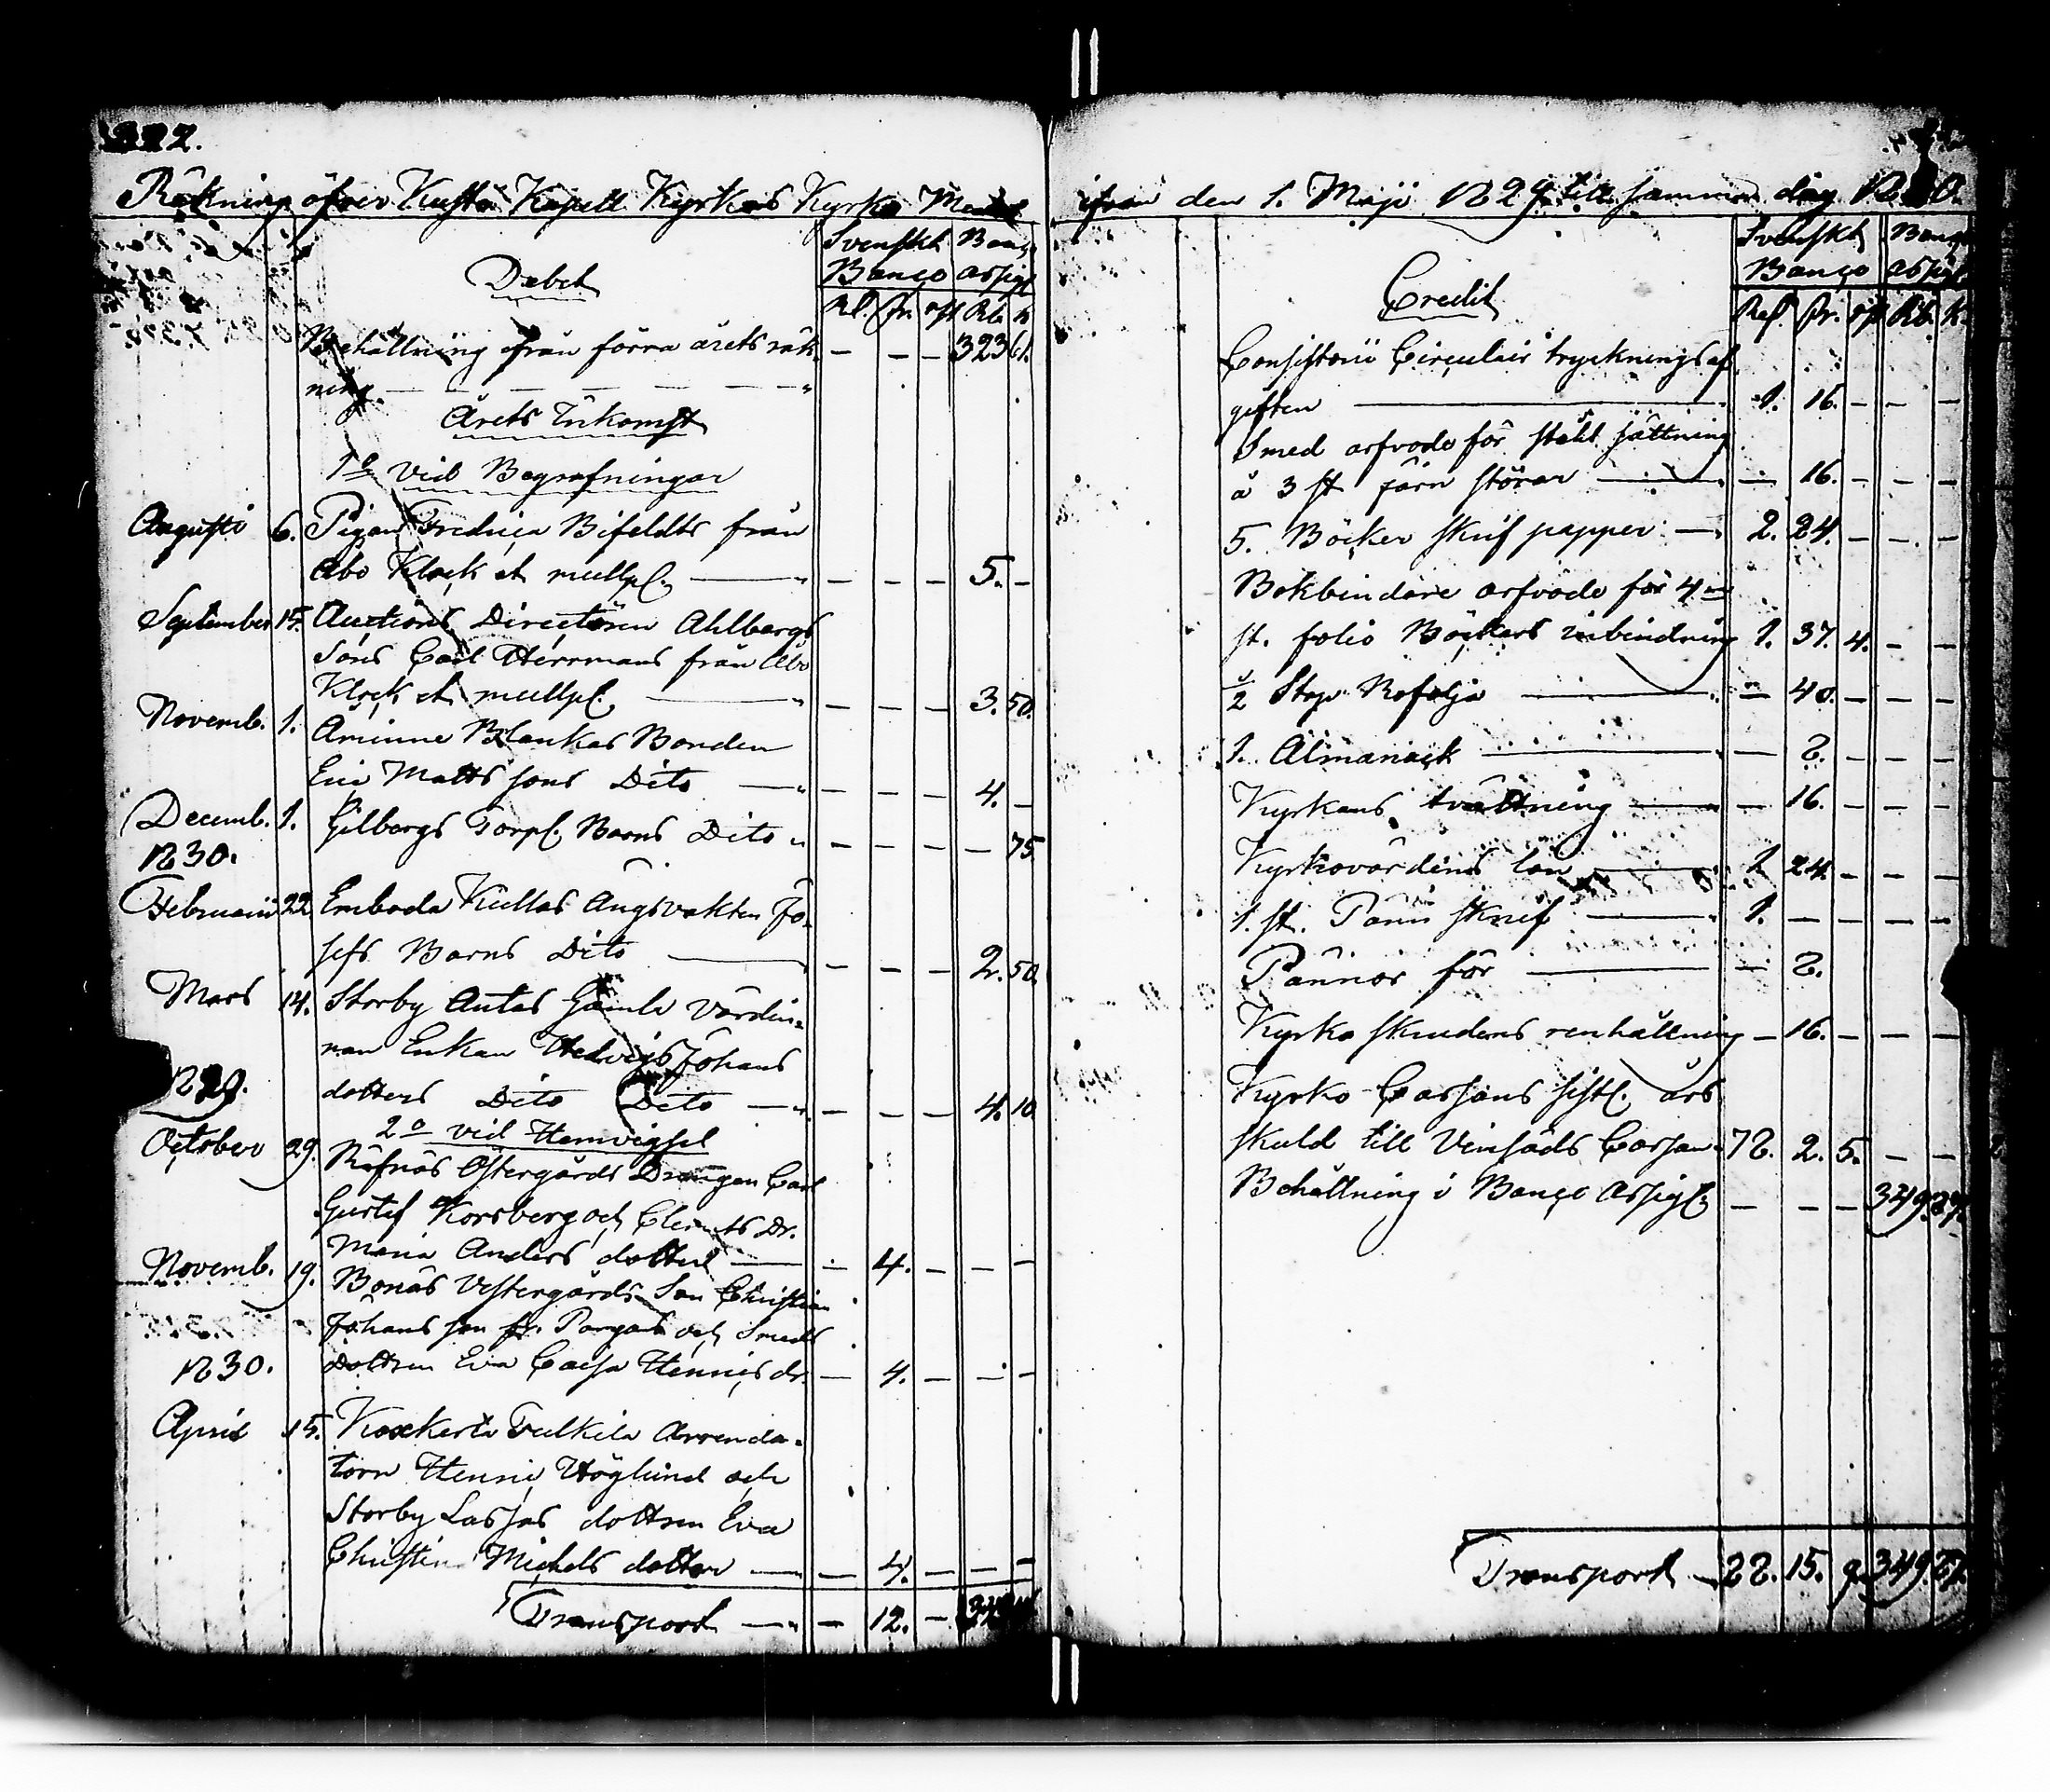 322.
Räkning öfver Kustö Kapell Kyrkas Kyrko Medel
Svenskt Banco
Banco assign
Debet
Rd. sk. öre Rb. k
Behållning från förra årets räk- — — — 323 61.
ning
Årets Inkomst
1º vid Begrafningar
Augusti 6. Pigan Fredrica Bifeldts från
Åbo Klock et mullpl. — — — 5. —
September 15. Auctions Directören Ahlbergs
Sons Carl Herrmans från Åbo
Klock et mullpl. — — — 3. 50.
Novemb. 1. Åminne Blankas Bonden
Eric Mattssons Dito — — — 4. —
Decemb. 1. Gilbergs Torpf. Barns Dito — — — — 75
1830.
Februarii 22 Emboda Kullas Ängsvakten Jo-
sefs Barns Dito — — — 2. 50.
Mars 14. Storby Antas Gamla Värdin-
nan Enkan Hedvigs Johans
dotters Dito Dito — — — 4. 10
1829.
2º vid Hemvigsel
October 29. Räfnäs Östergårds Drängen Carl
Gustaf Korsberg och Clemets Dr.
Maria Anders dotter — 4. — — —
Novemb. 19. Bonäs Vestergårds Son Christian
Johans son fr. Pargas och Smeds
Dottren Eva Caisa Henrics dr. — 4. — — —
1830.
April 15. Koxkerta Tulkila Arrenda-
torn Henric Höglund och
Storby Lassas dottren Eva
Christina Michels dotter — 4. — — —
Transport — 12. —
ifrån den 1. Maji 1829 till samma dag 1830.
Svenskt Banco
Banco assign
Credit
Rd. sk. öre Rb. k.
Consistorii Circulair tryckningsaf
giften 1. 16. — — —
Smed arfvode för stahl sättning
å 3 st järn störar — 16. — — —
5. Böcker skrif papper — 2. 24. — — —
Bokbindare arfvode för 4
st. folio Böckers inbindning 1. 37. 4. — —
½ Stop — 40. — — —
1. Almanack — 8. — — —
Kyrkans tvättning — 16. — — —
Kyrkovärdens lön 1 24. — — —
1. st. Penn knif 1. — — — —
Pännor för — 8.
Kyrko skrudens renhållning — 16. — — —
Kyrko Cassans sistl. års
skuld till Vinsäds Cassan 78. 2. 5. — —
Behållning i Banco Assign. — — — 349. 27.
Transport — 15. 9. 349. 27.